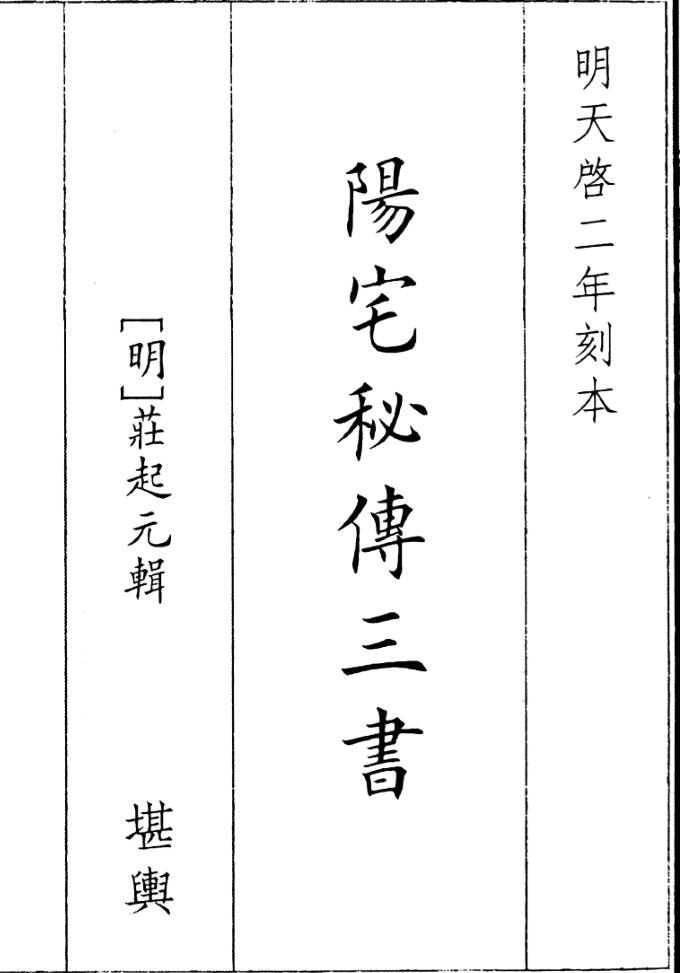 明天啓二年刻本
陽宅秘傳三書
[明]莊起元輯
堪輿